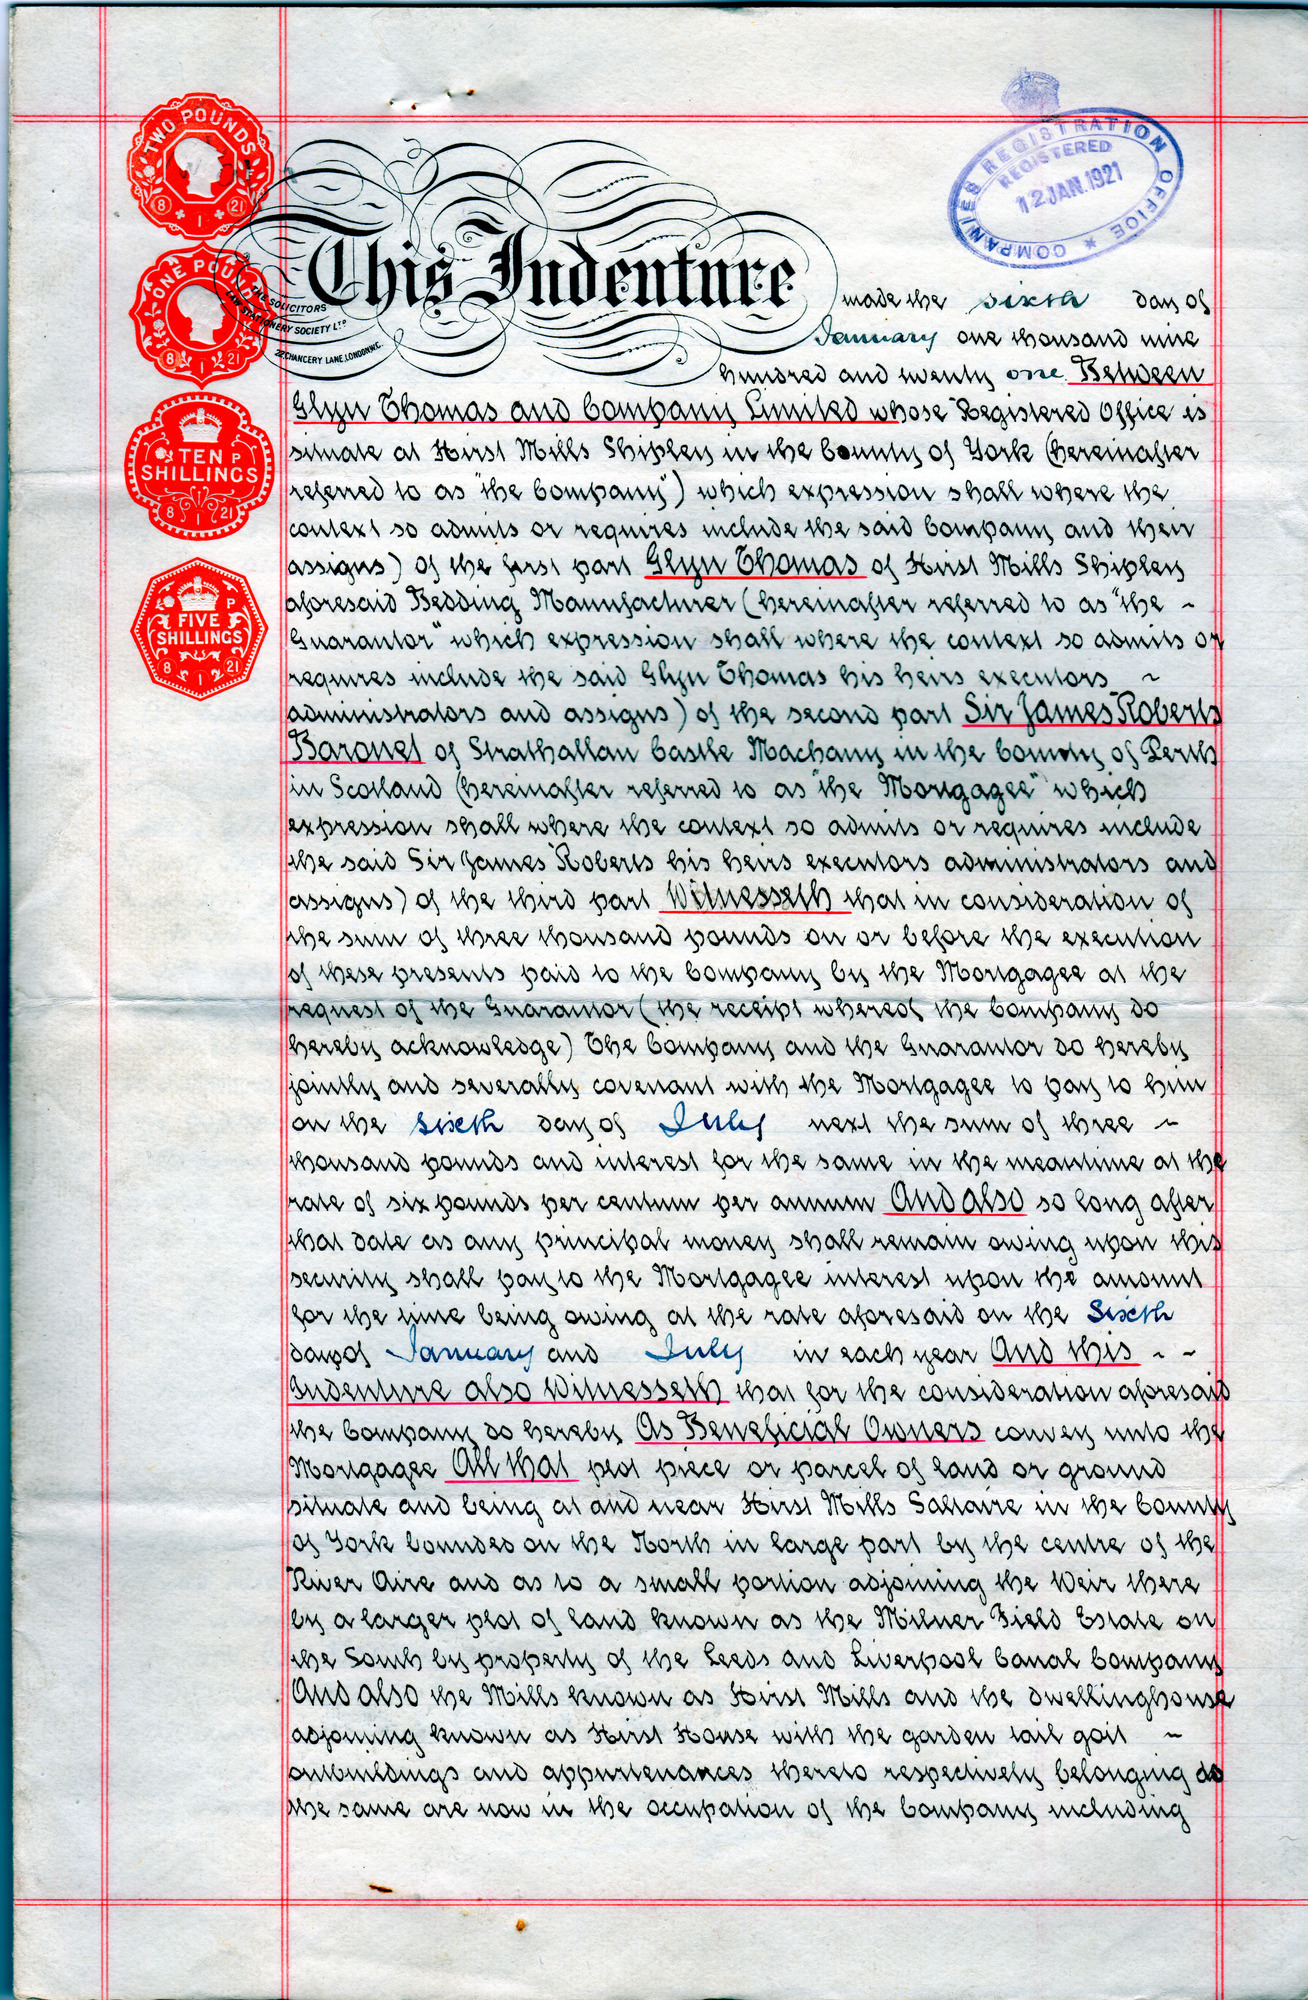 TWO POUNDS
8 1 21
ONE POUND
8 1 21
TEN P
SHILLINGS
8 1 21
P
FIVE
SHILLINGS
8 1 21
COMPANIES REGISTRATION OFFICE
REGISTERED
12 JAN. 1921
THE SOLICITORS
LAW STATIONERY SOCIETY LTD
22 CHANCERY LANE, LONDON W.C.
This Indenture made the sixth day of
January one thousand nine
hundred and twenty one Between
Glyn Thomas and Company Limited whose Registered Office is
situate at Hirst Mills Shipley in the County of York (hereinafter
referred to as "the Company") which expression shall where the
context so admits or requires include the said Company and their
assigns) of the first part Glyn Thomas of Hirst Mills Shipley
aforesaid Bedding Manufacturer (hereinafter referred to as "the ~
Guarantor" which expression shall where the context so admits or
requires include the said Glyn Thomas his heirs executors ~
administrators and assigns) of the second part Sir James Roberts
Baronet of Strathallan Castle Machany in the County of Perth
in Scotland (hereinafter referred to as "the Mortgagee" which
expression shall where the context so admits or requires include
the said Sir James Roberts his heirs executors administrators and
assigns) of the third part Witnesseth that in consideration of
the sum of three thousand pounds on or before the execution
of these presents paid to the Company by the Mortgagee at the
request of the Guarantor (the receipt whereof the Company do
hereby acknowledge) The Company and the Guarantor do hereby
jointly and severally covenant with the Mortgagee to pay to him
on the sixth day of July next the sum of three ~
thousand pounds and interest for the same in the meantime at the
rate of six pounds per centum per annum And also so long after
that date as any principal money shall remain owing upon this
security shall pay to the Mortgagee interest upon the amount
for the time being owing at the rate aforesaid on the Sixth
day of January and July in each year And this ~ ~
Indenture also Witnesseth that for the consideration aforesaid
the Company do hereby As Beneficial Owners convey unto the
Mortgagee All that plot piece or parcel of land or ground
situate and being at and near Hirst Mills Saltaire in the County
of York bounded on the North in large part by the centre of the
River Aire and as to a small portion adjoining the Weir there
by a larger plot of land known as the Milner Field Estate on
the South by property of the Leeds and Liverpool Canal Company
And also the Mills known as Hirst Mills and the dwellinghouse
adjoining known as Hirst House with the garden tail goit ~
outbuildings and appurtenances thereto respectively belonging as
the same are now in the occupation of the Company including